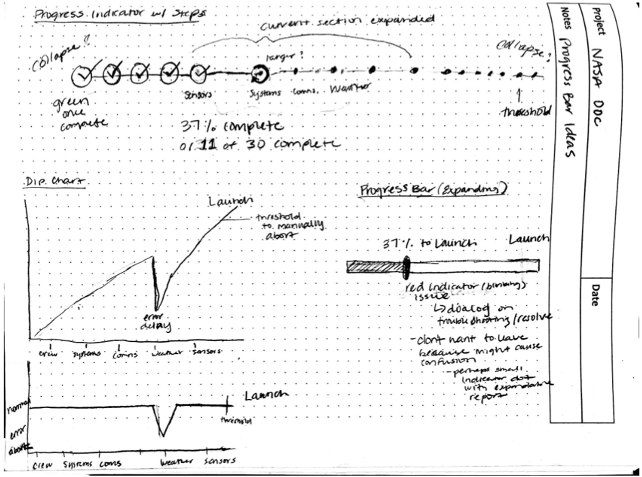 Progress Indicator w/ Steps
current section expanded
collapse!!
larger?
collapse?
green
once
complete
Sensors
Systems
comms.
Weather
threshold
37% complete
or 11 of 30 complete
Dip. Chart
Launch
threshold
to manually
abort
error
delay
crew
systems
comms
weather
sensors
normal
Launch
threshold
error
abort
crew
systems
coms
weather
sensors
Progress Bar (Expanding)
37% to Launch
Launch
red indicator (blinking)
issue
↳ dialog on
troubleshooting/resolve
- dont want to leave
because might cause
confusion
- perhaps small
indicator dot
with expandable
report
Project
NASA DDC
Notes
Progress Bar Ideas
Date